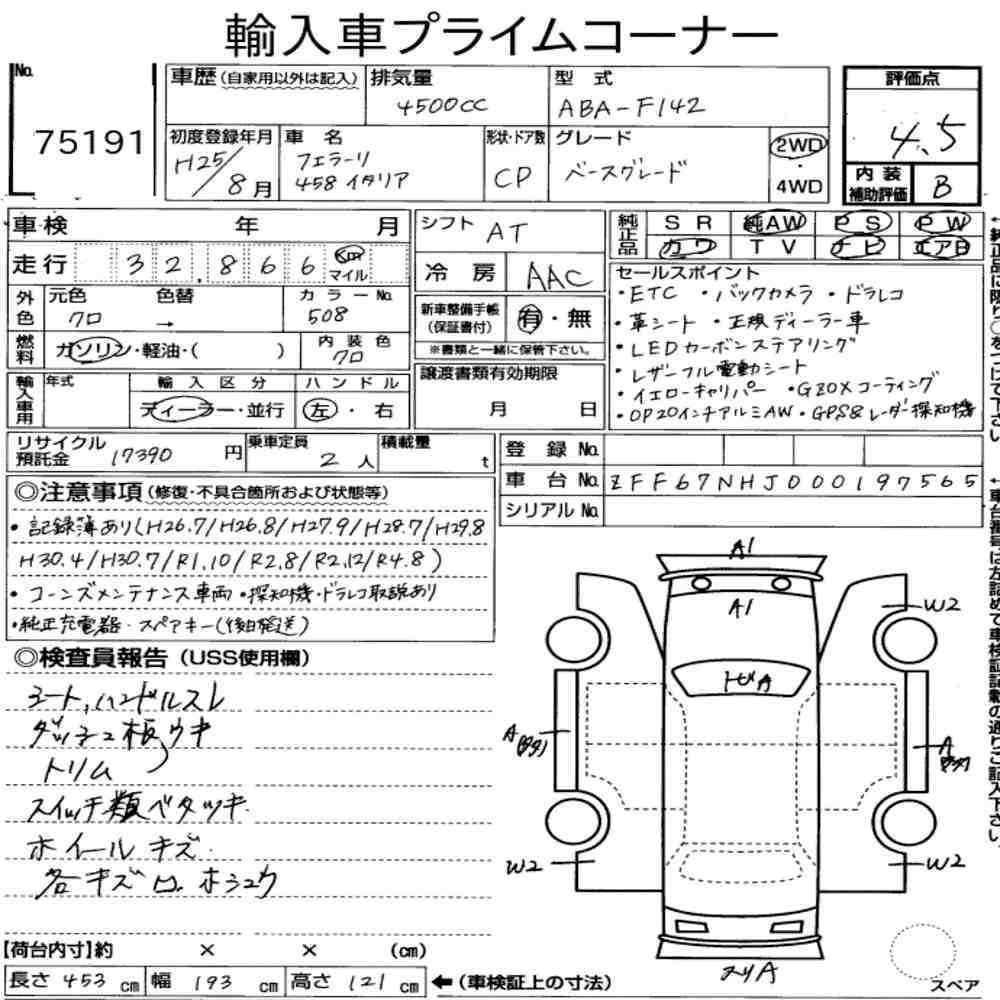 輸入車プライムコーナー
No. 75191
車歴(自家用以外は記入)
排気量 4500CC
型式 ABA-F142
評価点 4.5
内装補助評価 B
初度登録年月 H25/8月
車名 フェラーリ 458イタリア
形状・ドア数 CP
グレード ベースグレード
2WD・4WD
車検 年 月
走行 32,866 Km マイル
外色 元色 クロ 色替 → カラーNo. 508
燃料 ガソリン・軽油・( )
内装色 クロ
輸入車用 年式
輸入区分 ディーラー・並行
ハンドル 左・右
シフト AT
冷房 AAC
新車整備手帳(保証書付) 有・無
※書類と一緒に保管下さい。
譲渡書類有効期限 月 日
純正品 SR 純AW PS PW
カワ TV ナビ エアB
セールスポイント
・ETC ・バックカメラ ・ドラレコ
・革シート ・正規ディーラー車
・LEDカーボンステアリング
・レザーフル電動シート
・イエローキャリパー ・GZOXコーティング
・OP20インチアルミAW・GPS&レーダー探知機
←純正品に限り○をつけて下さい
リサイクル預託金 17390円
乗車定員 2人
積載量 t
登録No.
車台No. ZFF67NHJ000197565
シリアルNo.
←車台番号は左詰めで車検証記載の通りご記入下さい。
◎注意事項(修復・不具合箇所および状態等)
・記録簿あり(H26.7/H26.8/H27.9/H28.7/H29.8
H30.4/H30.7/R1.10/R2.8/R2.12/R4.8)
・コーンズメンテナンス車両 ・探知機・ドラレコ取説あり
・純正充電器・スペアキー(後日発送)
◎検査員報告(USS使用欄)
シート,ハンドルスレ
ダッシュ板ウキ
トリム
スイッチ類ベタツキ
ホイールキズ
各キズ ホシュウ
A1
A1
W2
トビA
A
A
W2
W2
スリA
【荷台内寸】約 × × (cm)
長さ 453 cm 幅 193 cm 高さ 121 cm ←(車検証上の寸法)
スペア